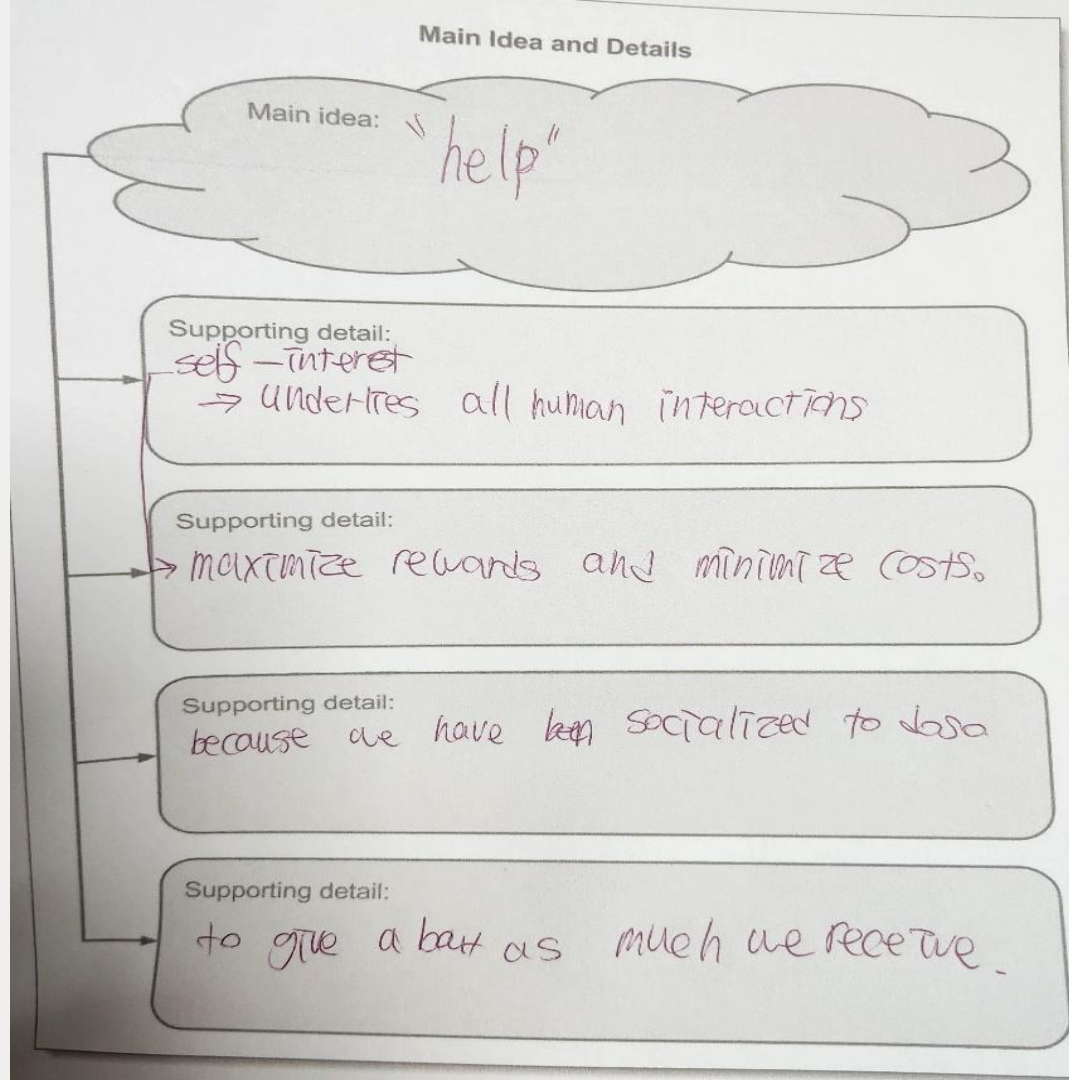 Main Idea and Details
Main idea: "help"
Supporting detail:
self-interest
→ underlies all human interactions
Supporting detail:
→ maximize rewards and minimize costs.
Supporting detail:
because we have been socialized to do so
Supporting detail:
to give a as much we receive.